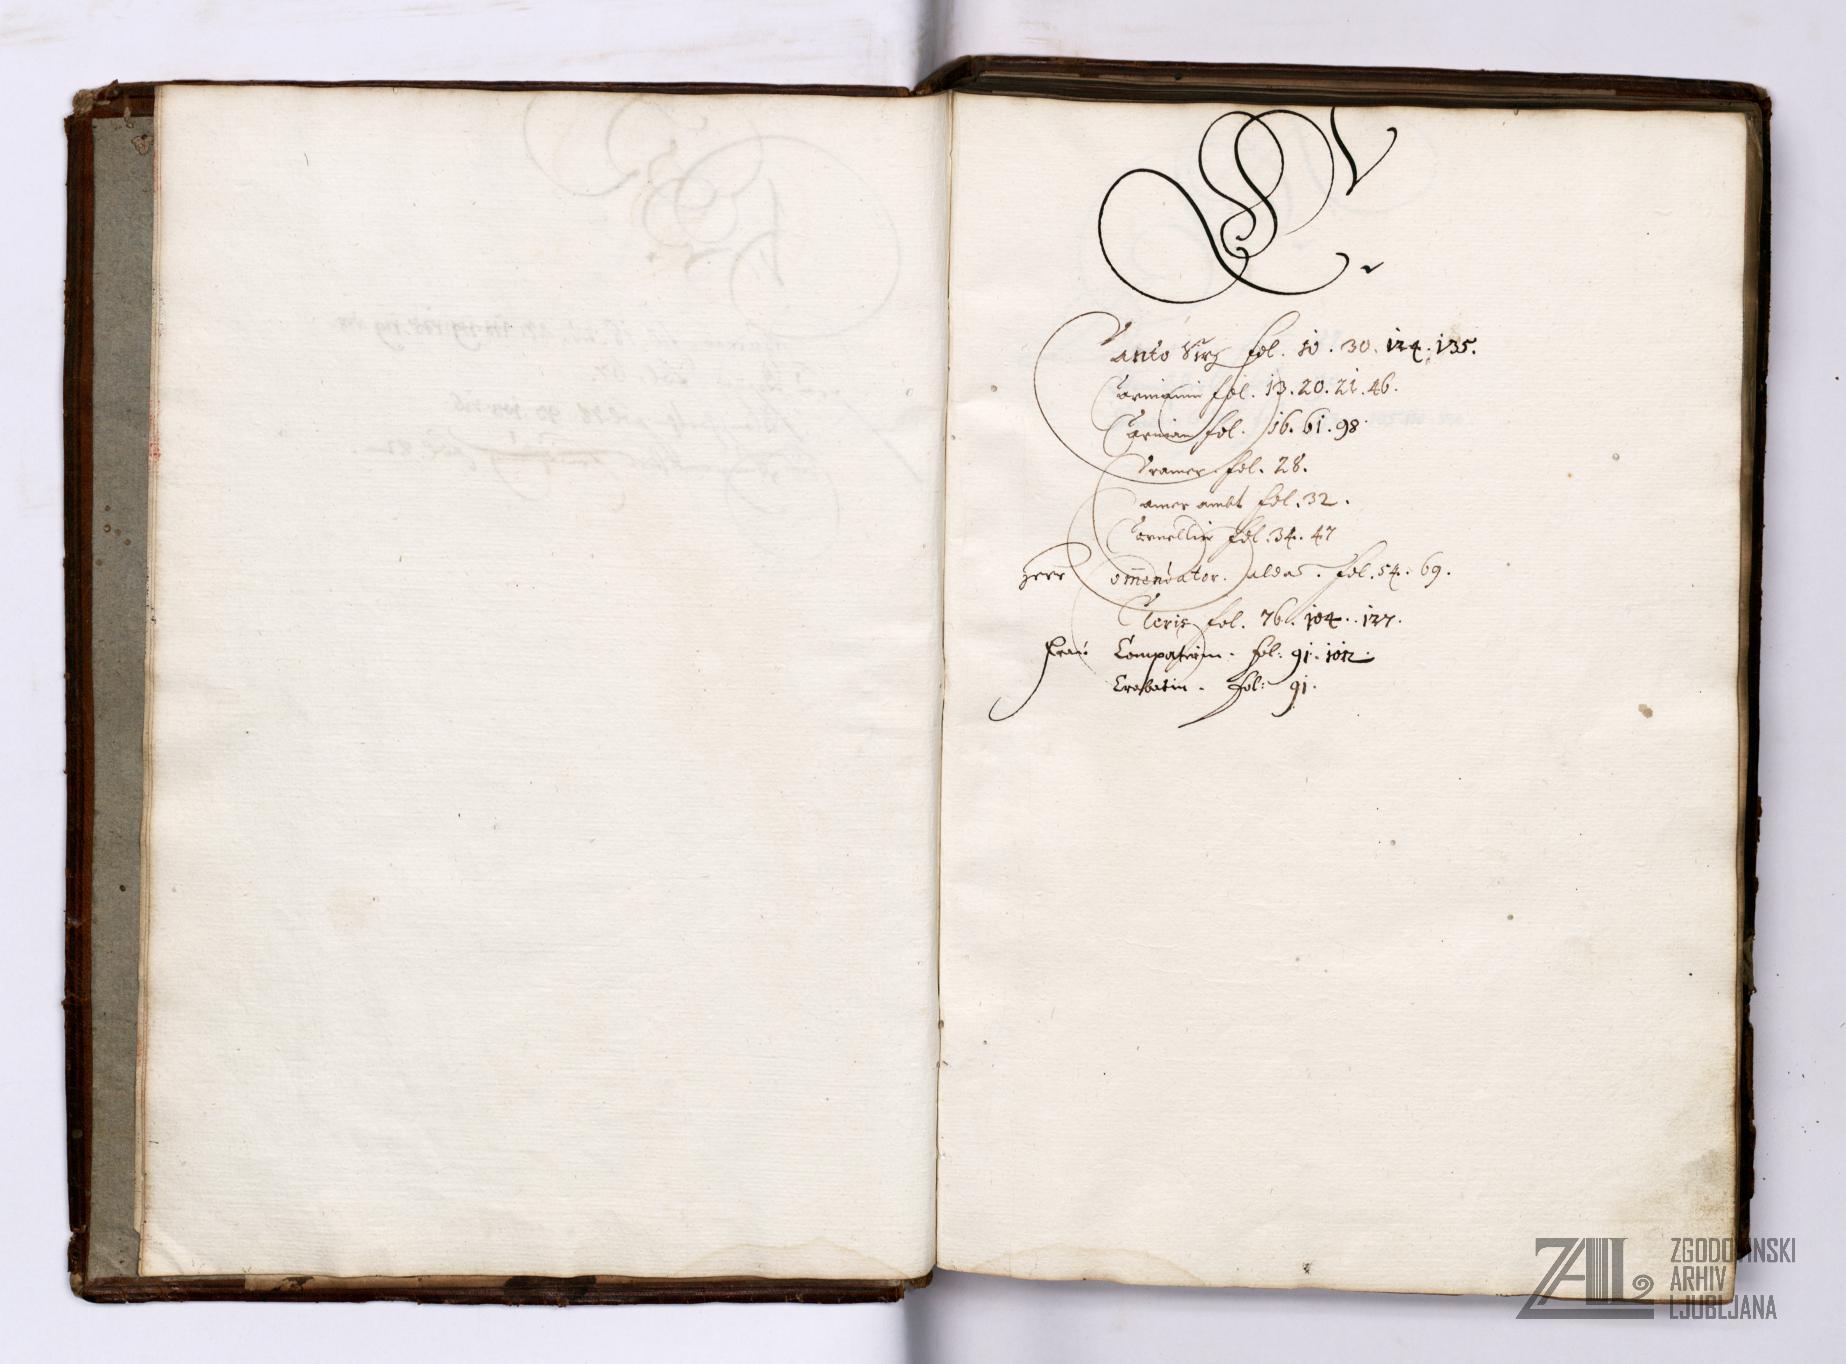 C.
Canto Virg fol. 10. 30. 124. 135.
Carminin fol. 13. 20. 21. 46.
Carmian fol. 16. 61. 98.
Cramer fol. 28.
Camer ambt fol. 32.
Cornellin fol. 34. 47
Herr Comendator. fol. 54. 69.
Cleris fol. 76. 104. 127.
Frau Compaterin. fol: 91. 102.
Crabatin. fol: 91.
ZAL
ZGODOVINSKI
ARHIV
LJUBLJANA